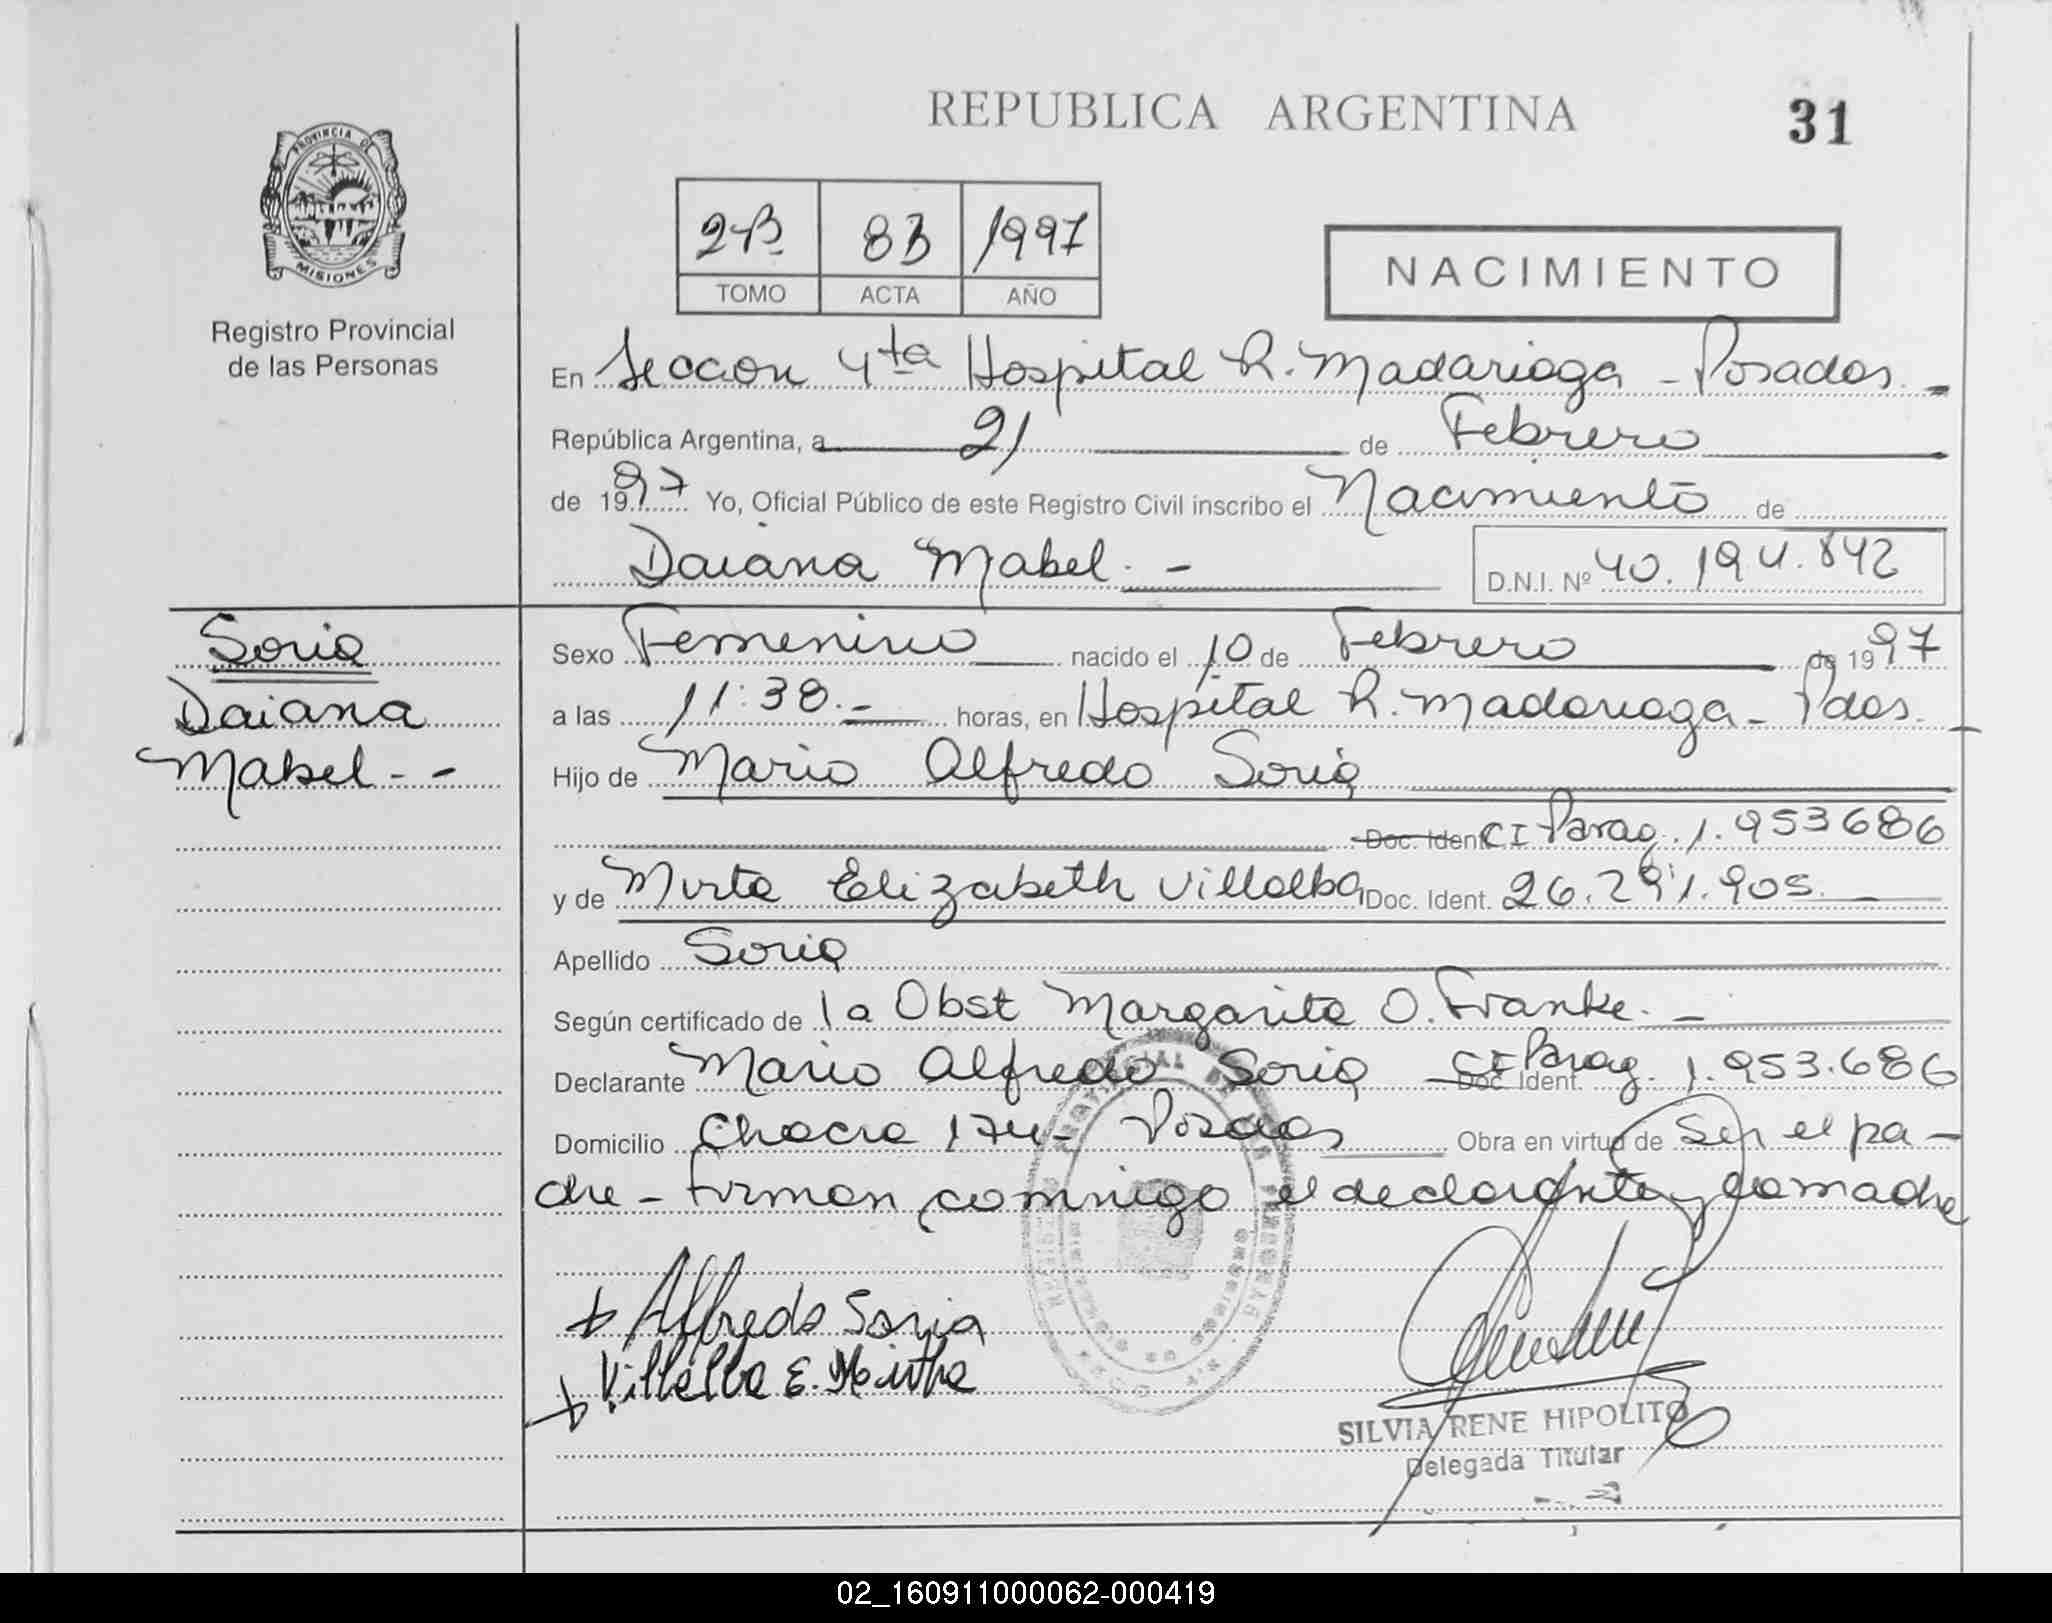 REPUBLICA ARGENTINA
31
PROVINCIA DE
MISIONES
Registro Provincial
de las Personas
2B 83 1997
TOMO ACTA AÑO
NACIMIENTO
En Seccion 4ta Hospital R. Madariaga - Posadas. -
República Argentina, a 21 de Febrero
de 1997 Yo, Oficial Público de este Registro Civil inscribo el Nacimiento de
Daiana Mabel. -
D.N.I. Nº 40.194.842
Soria
Daiana
Mabel - -
Sexo Femenino nacido el 10 de Febrero de 1997
a las 11:38.- horas, en Hospital R. Madariaga - Pdas. -
Hijo de Mario Alfredo Soria
Doc. Ident. CI Parag. 1.953686
y de Mirta Elizabeth Villalba Doc. Ident. 26.291.905.
Apellido Soria
Según certificado de la Obst Margarita O. Franke. -
Declarante Mario Alfredo Soria Doc. Ident. CI Parag. 1.953.686
Domicilio Chacra 174 - Posadas Obra en virtud de Ser el pa-
dre - Firman conmigo el declarante y la madre
Alfredo Soria
Villalba E. Mirtha
SILVIA RENE HIPOLITO
Delegada Titular
02_160911000062-000419